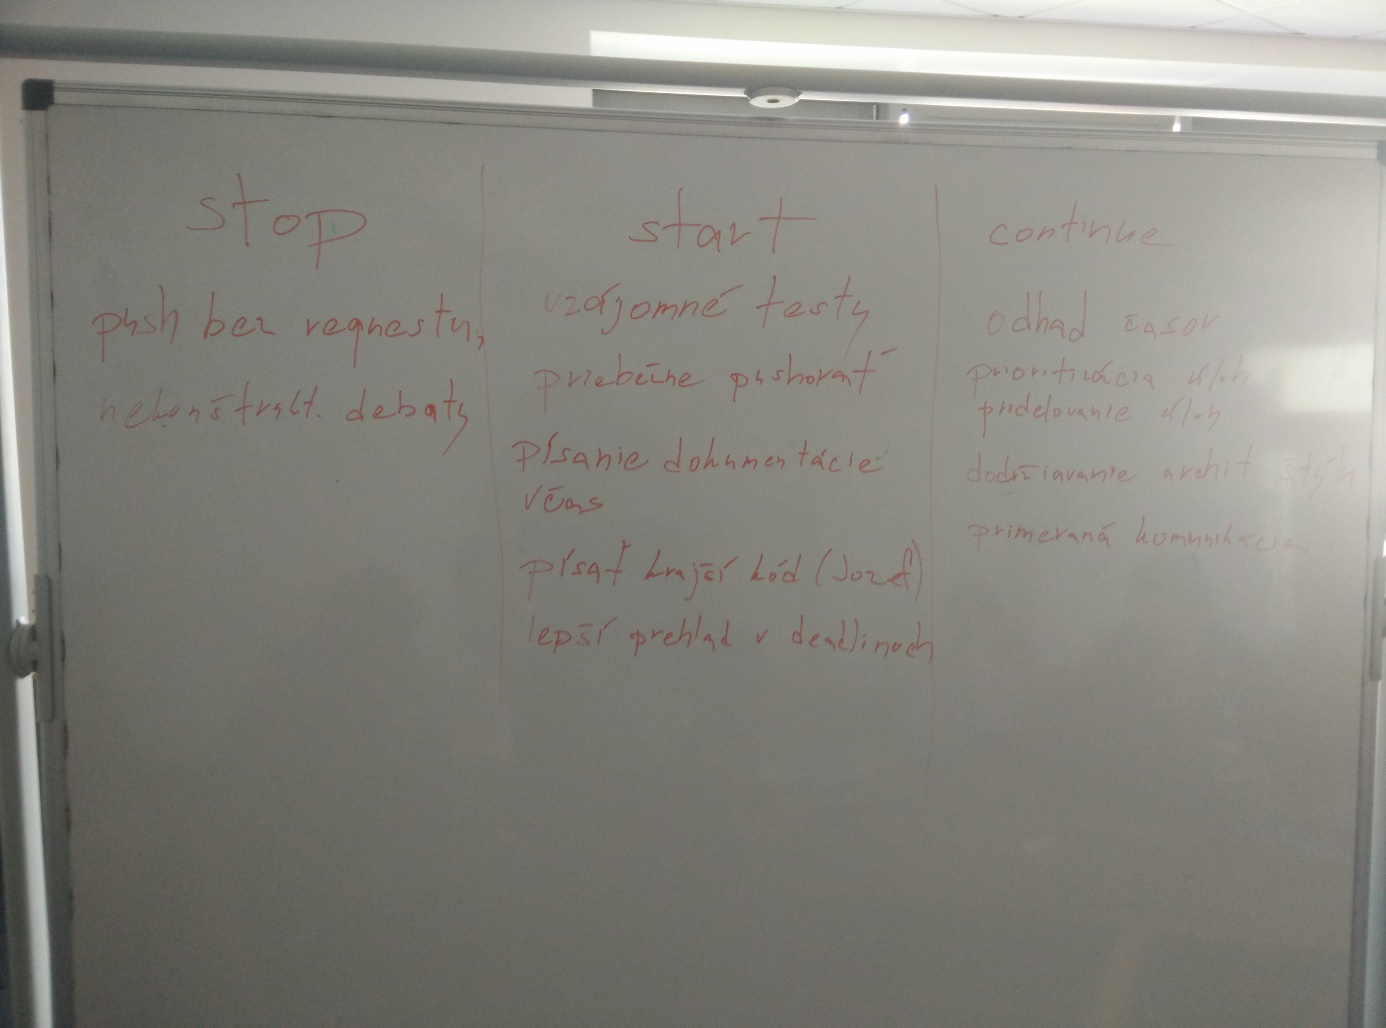 stop
push bez requestu,
nekonštrukt. debaty
start
vzájomné testy
priebežne pushovať
písanie dokumentácie
včas
písať krajší kód (Jozef)
lepší prehlad v deadlinoch
continue
odhad časov
prioritizácia úloh
pridelovanie úloh
dodržiavanie archit štýlu
primeraná komunikácia